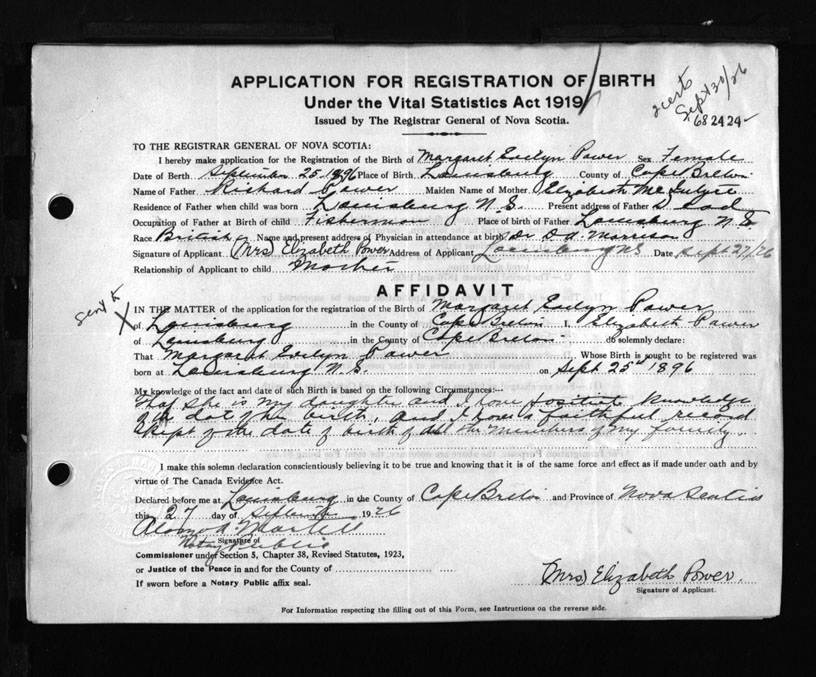 APPLICATION FOR REGISTRATION OF BIRTH
Under the Vital Statistics Act 1919
Issued by The Registrar General of Nova Scotia.
Sept 30/26
682424-
TO THE REGISTRAR GENERAL OF NOVA SCOTIA:
I hereby make application for the Registration of the Birth of Margaret Evelyn Power Sex Female
Date of Birth September 25 1896 Place of Birth Louisburg County of Cape Breton
Name of Father Richard Power Maiden Name of Mother Elizabeth McIntyre
Residence of Father when child was born Louisburg N.S. Present address of Father Dead
Occupation of Father at Birth of child Fisherman Place of birth of Father Louisburg N.S
Race British Name and present address of Physician in attendance at birth Dr D.A. Morrison
Signature of Applicant (Mrs) Elizabeth Power Address of Applicant Louisburg NS Date Sept 27/26
Relationship of Applicant to child Mother
AFFIDAVIT
Sent to X
IN THE MATTER of the application for the registration of the Birth of Margaret Evelyn Power
of Louisburg in the County of Cape Breton I, Elizabeth Power
of Louisburg in the County of Cape Breton do solemnly declare:
That Margaret Evelyn Power Whose Birth is sought to be registered was
born at Louisburg N.S. on Sept 25th 1896
My knowledge of the fact and date of such Birth is based on the following Circumstances:—
That she is my daughter and I have positive knowledge
of the date of her birth, and I have a faithful record
kept of the date of birth of all the members of my family.
I make this solemn declaration conscientiously believing it to be true and knowing that it is of the same force and effect as if made under oath and by
virtue of The Canada Evidence Act.
Declared before me at Louisburg in the County of Cape Breton and Province of Nova Scotia
this 27 day of September 1926
A Martell
Signature of
Notary Public
Commissioner under Section 5, Chapter 38, Revised Statutes, 1923,
or Justice of the Peace in and for the County of
If sworn before a Notary Public affix seal.
(Mrs) Elizabeth Power.
Signature of Applicant.
For Information respecting the filling out of this Form, see Instructions on the reverse side.